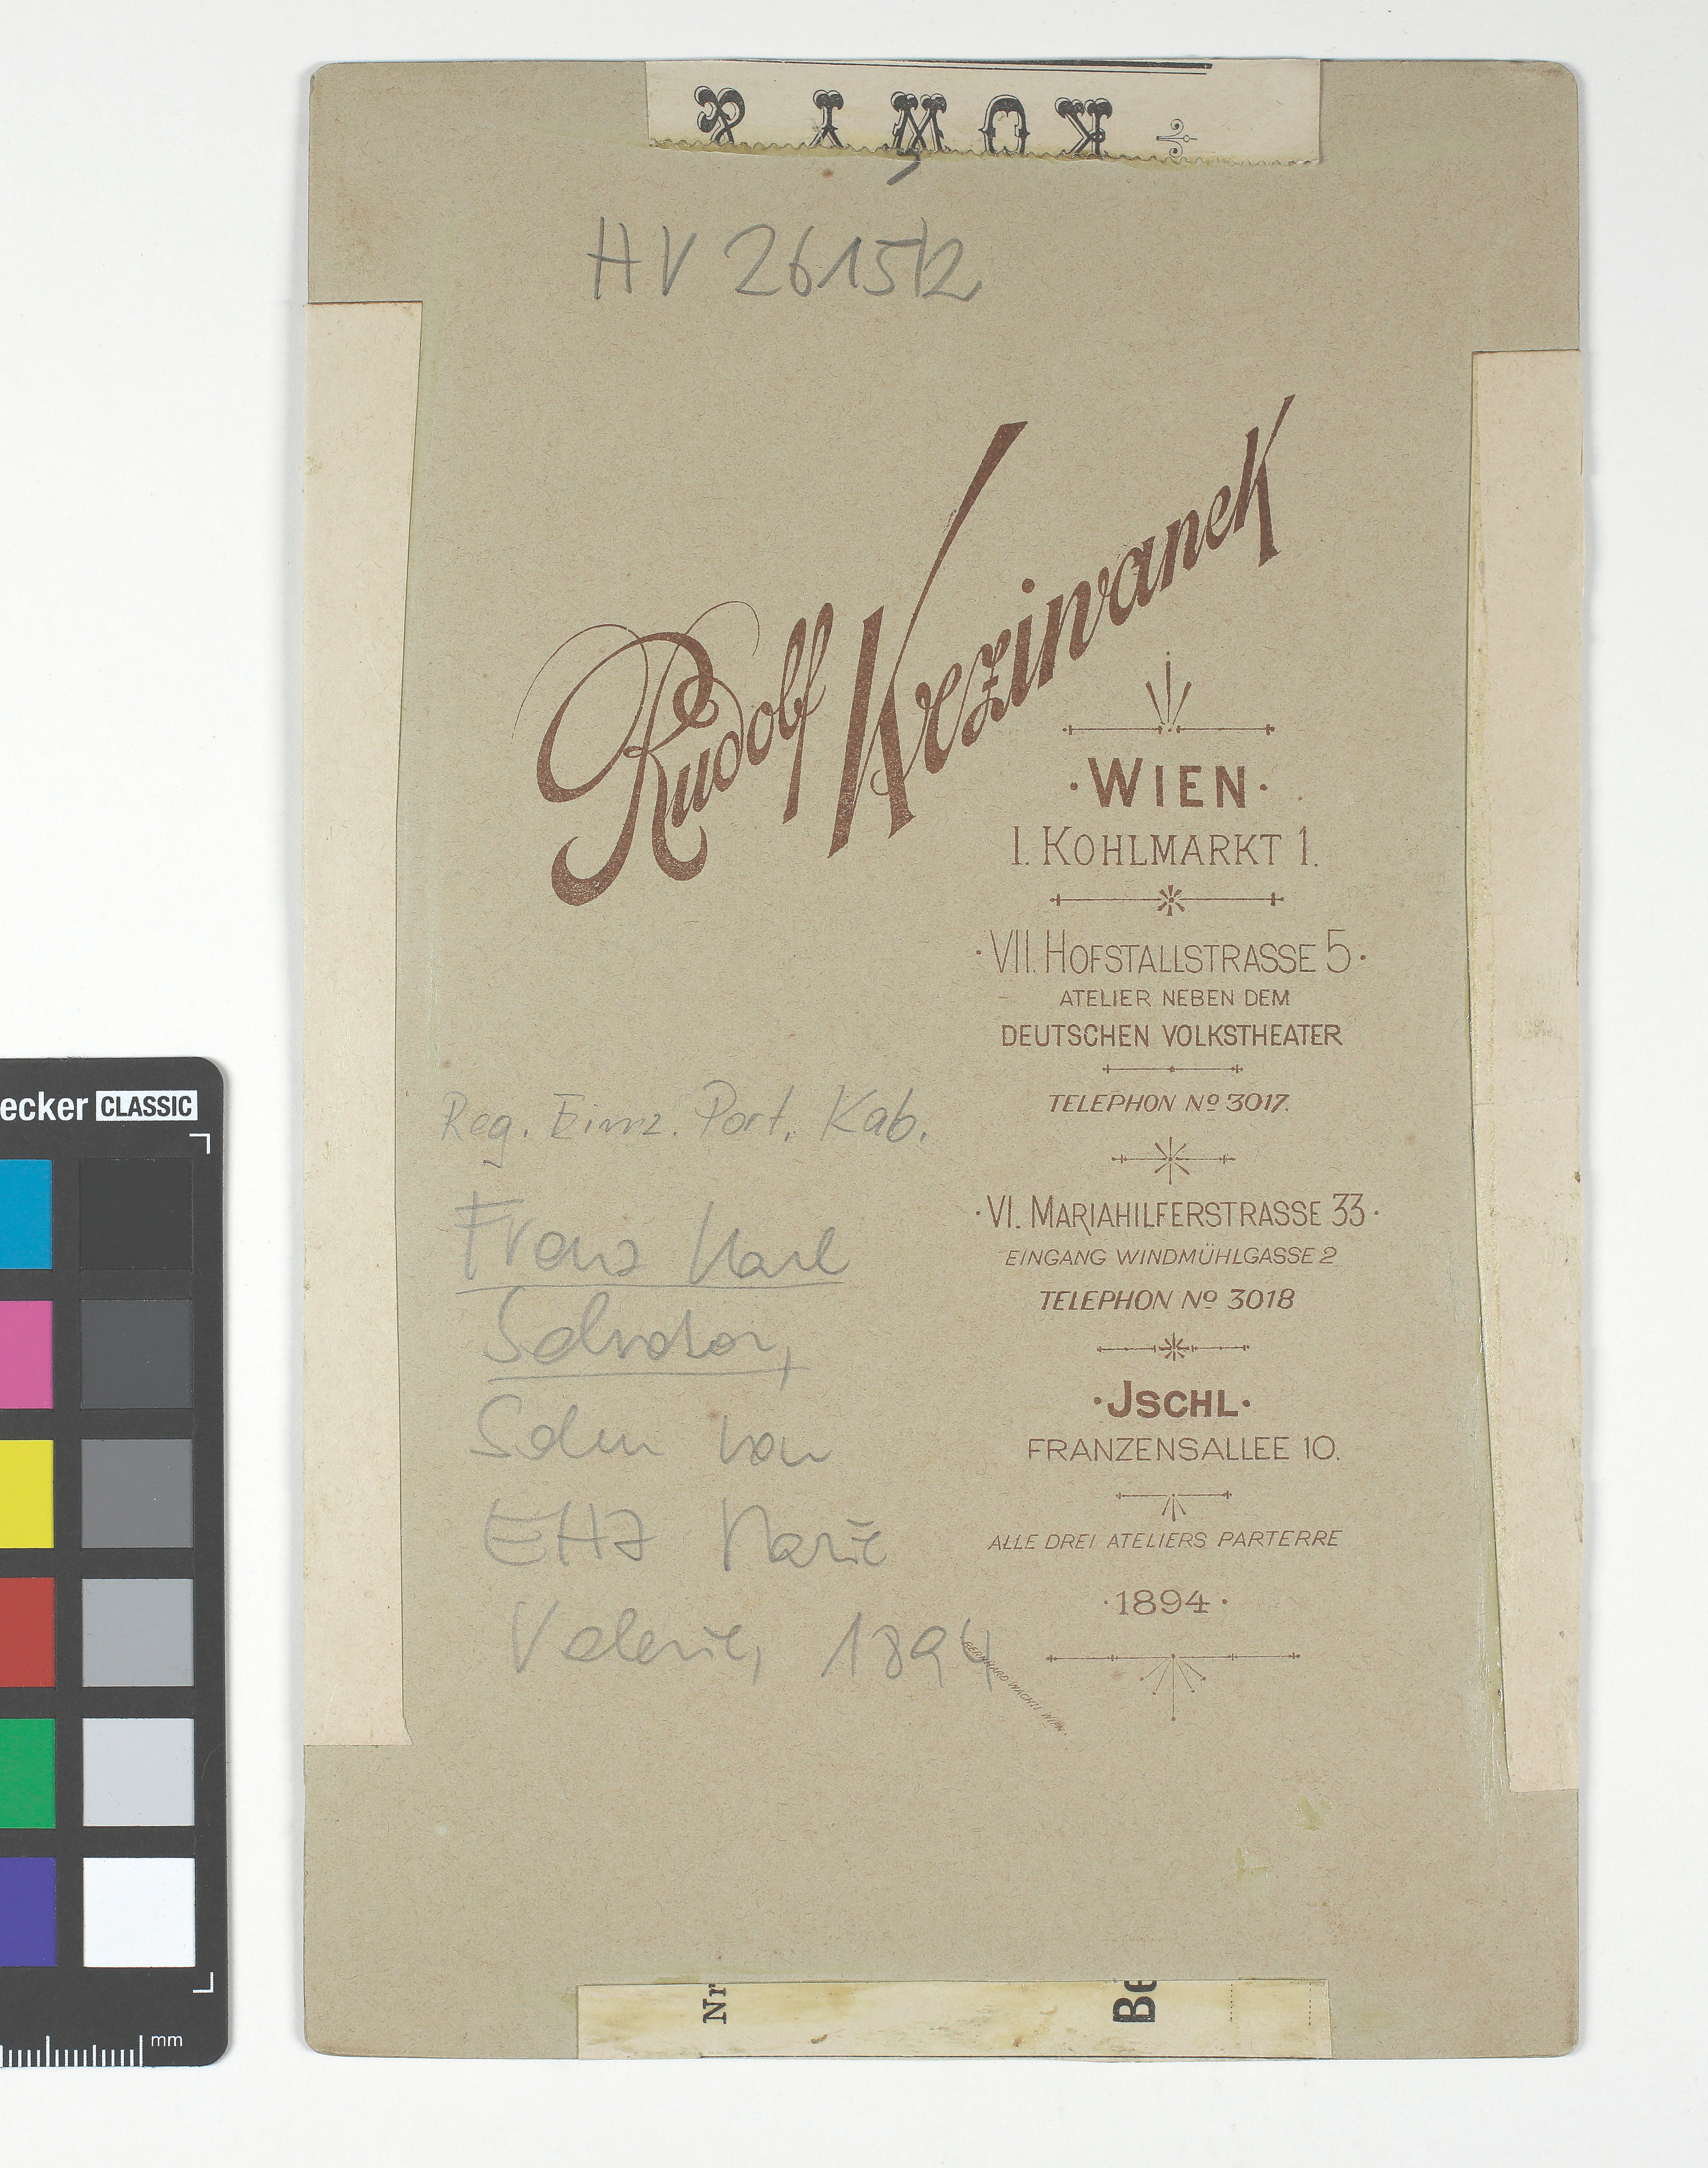 HV 26152
Rudolf Krziwanek
·WIEN·
I. KOHLMARKT 1.
·VII. HOFSTALLSTRASSE 5·
ATELIER NEBEN DEM
DEUTSCHEN VOLKSTHEATER
TELEPHON Nº 3017.
·VI. MARIAHILFERSTRASSE 33·
EINGANG WINDMÜHLGASSE 2
TELEPHON Nº 3018
·JSCHL·
FRANZENSALLEE 10.
ALLE DREI ATELIERS PARTERRE
·1894·
Reg. Einz. Port. Kab.
Franz Karl
Salvator,
Sohn von
EHZ Marie
Valerie, 1894
BERNHARD WACHTL WIEN.
Nr
Be
ecker CLASSIC
mm